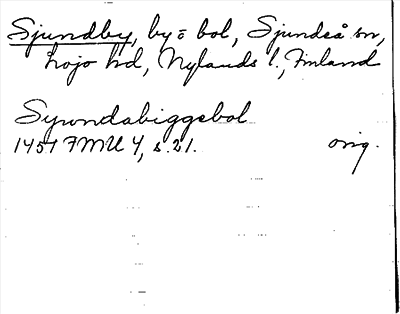 Sjundby, by = bol, Sjundeå sn,
Lojo hd, Nylands l., Finland
Sywndabiggebol
1451 FMU 4, s. 21. orig.